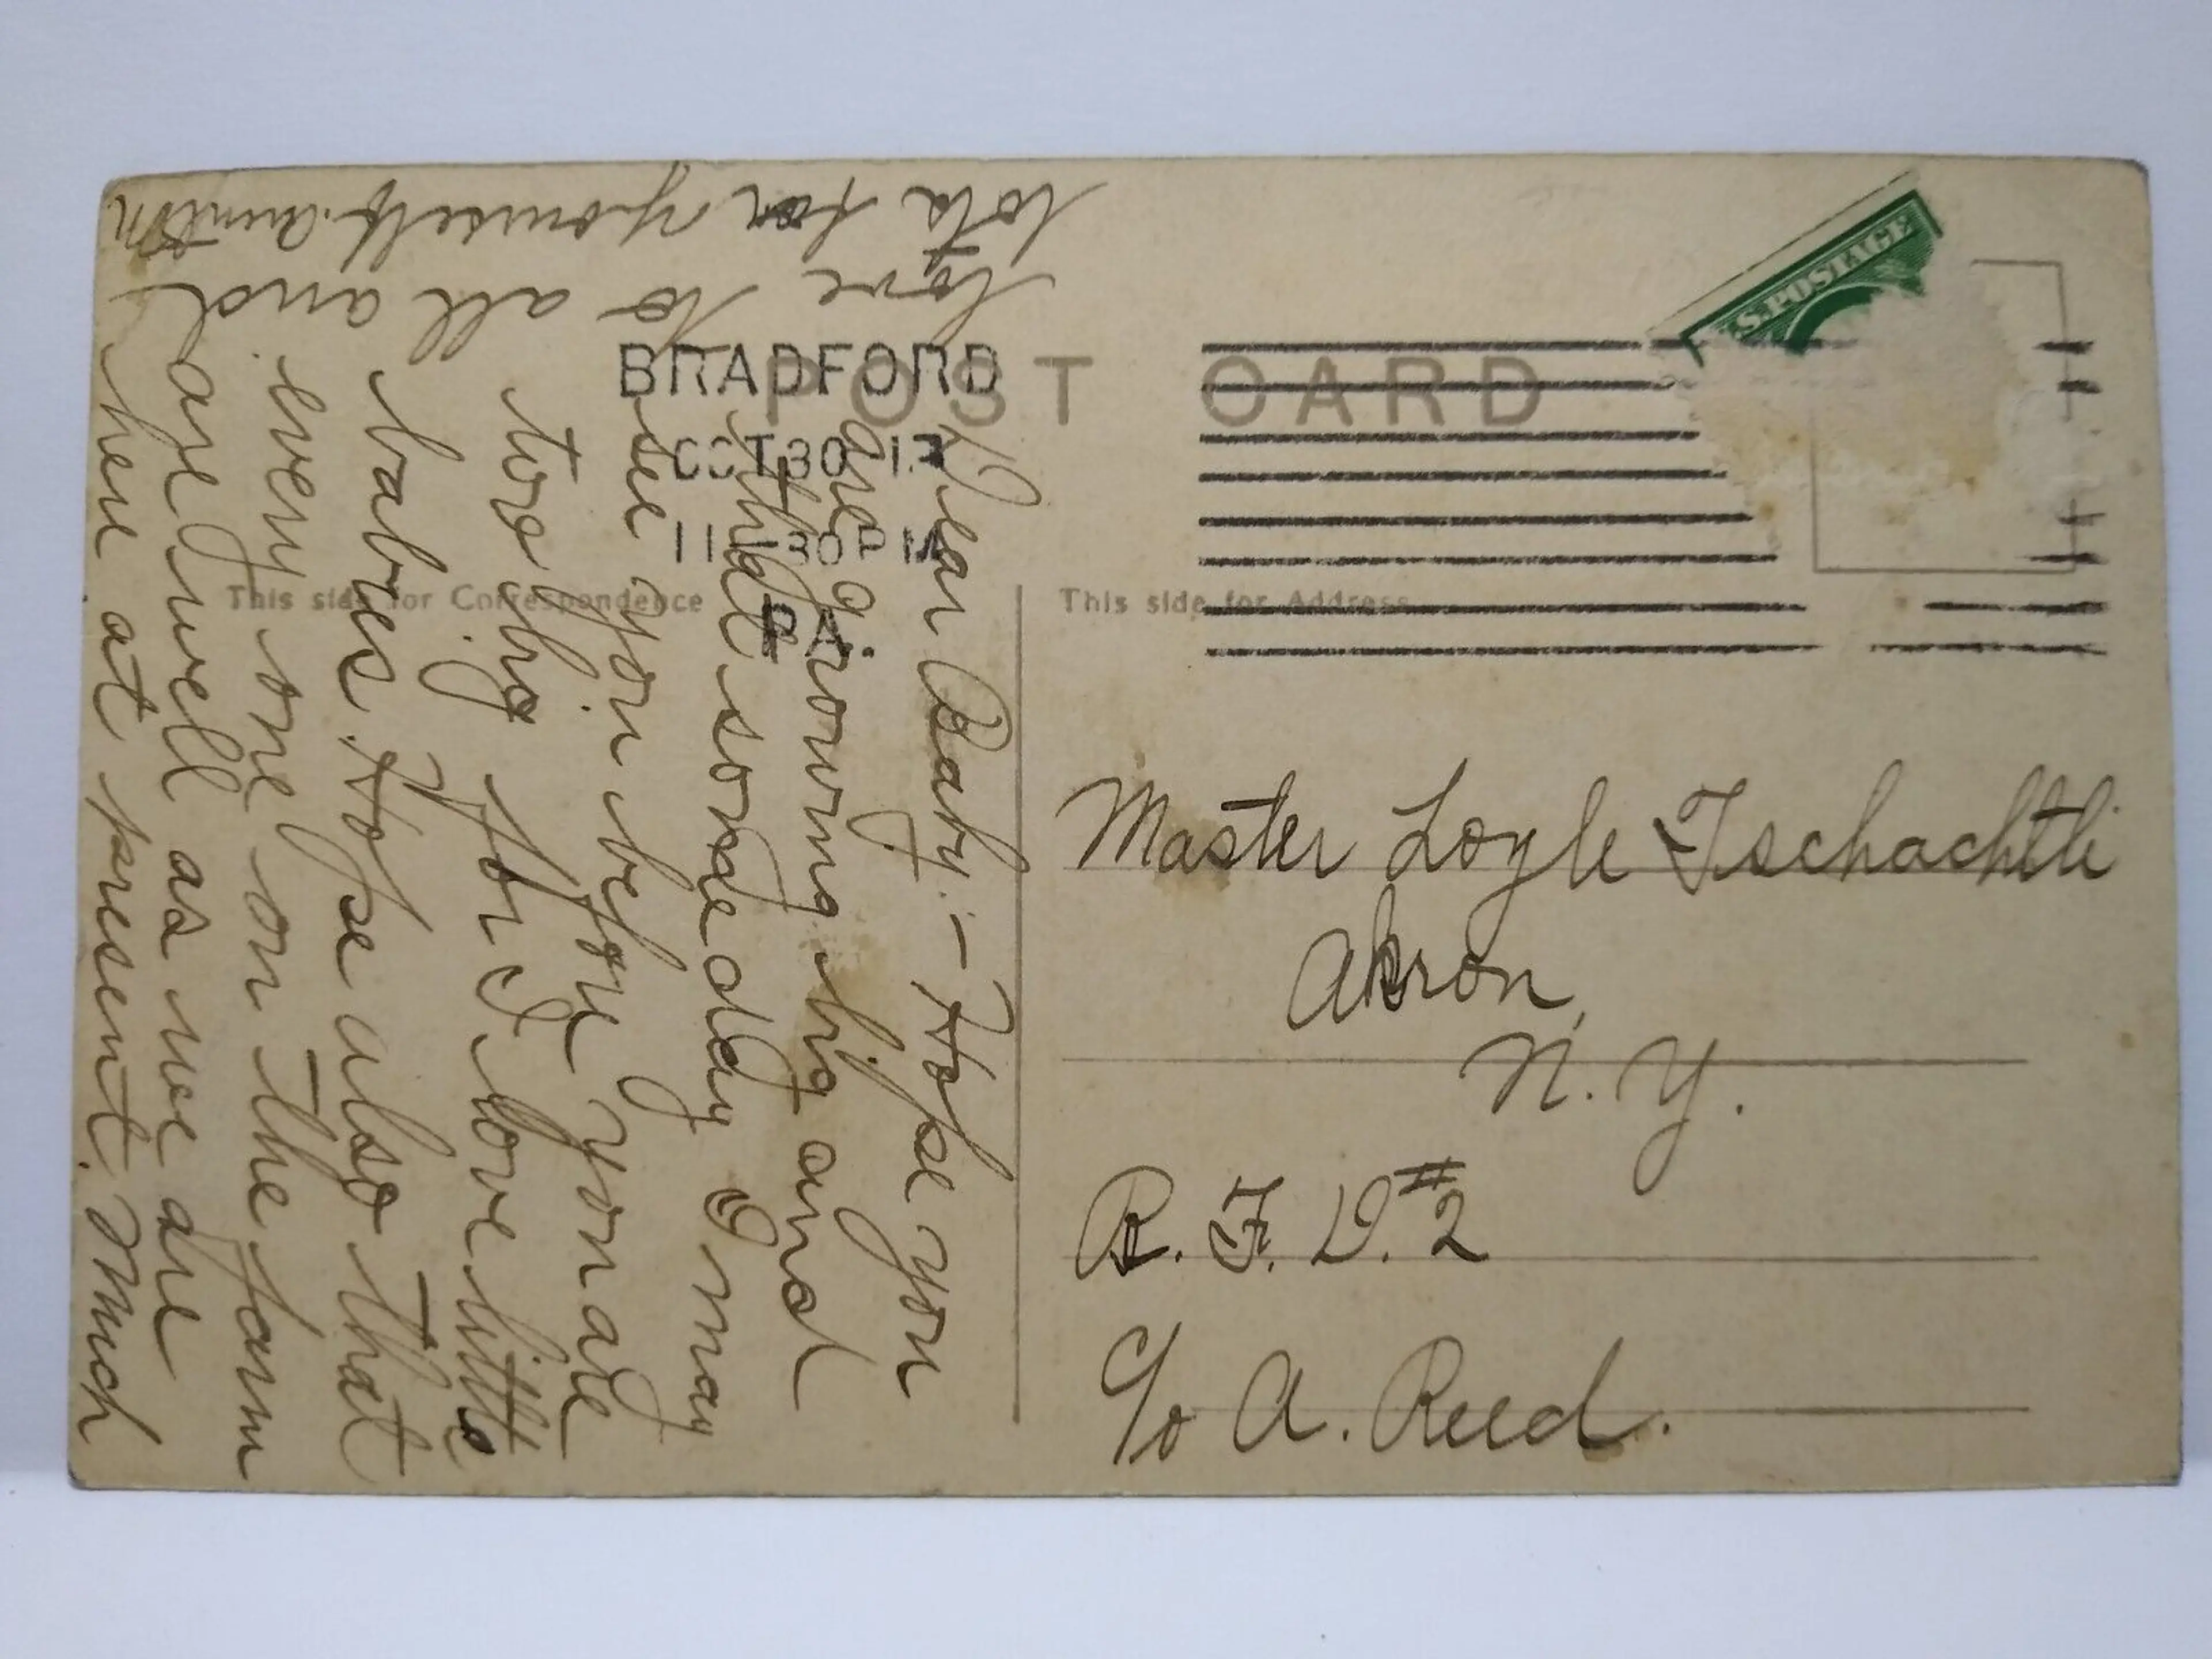 POST CARD
BRADFORD
OCT 30
11-30 P M
PA.
U.S. POSTAGE
This side for Correspondence
This side for Address
Dear Baby:- Hope you
are growing big and
think some day I may
see you before you are
too big for I love little
babies. Hope also that
every one on the farm
are well as we are
here at present. Much
love to all and
lots for yourself.
Master Loyle Tschachtli
Akron,
N. Y.
R. F. D. #2
c/o A. Reed.